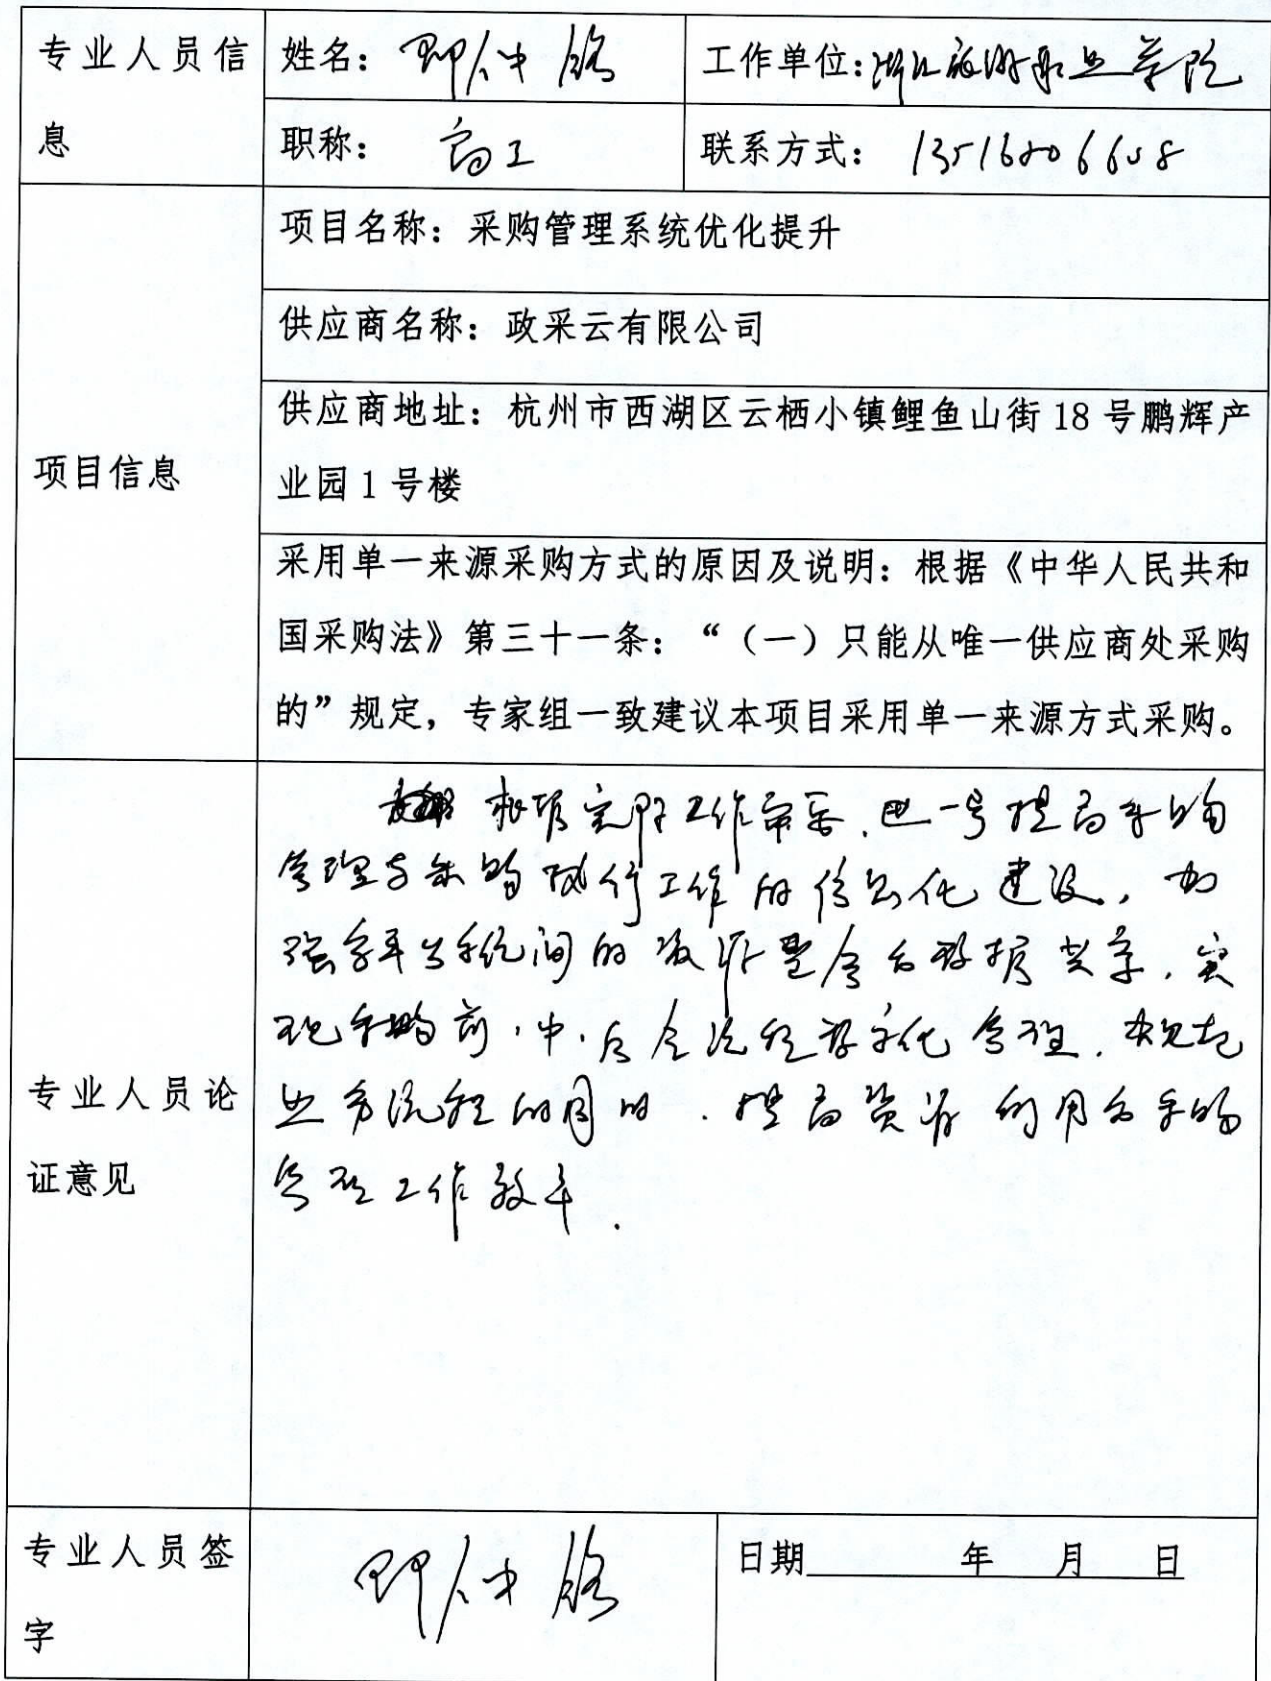 专业人员信息
姓名：
工作单位：浙江旅游职业学院
职称：高工
联系方式：13516806658
项目信息
项目名称：采购管理系统优化提升
供应商名称：政采云有限公司
供应商地址：杭州市西湖区云栖小镇鲤鱼山街 18 号鹏辉产
业园 1 号楼
采用单一来源采购方式的原因及说明：根据《中华人民共和
国采购法》第三十一条：“（一）只能从唯一供应商处采购
的”规定，专家组一致建议本项目采用单一来源方式采购。
专业人员论
证意见
根据实际工作需要，进一步提高采购
管理与采购执行工作的信息化建设，加
强各平台系统间的资源整合和数据共享，实
现采购前、中、后全流程数字化管理，规范
业务流程的同时，提高资源利用和采购
管理工作效率.
专业人员签
字
日期 年 月 日